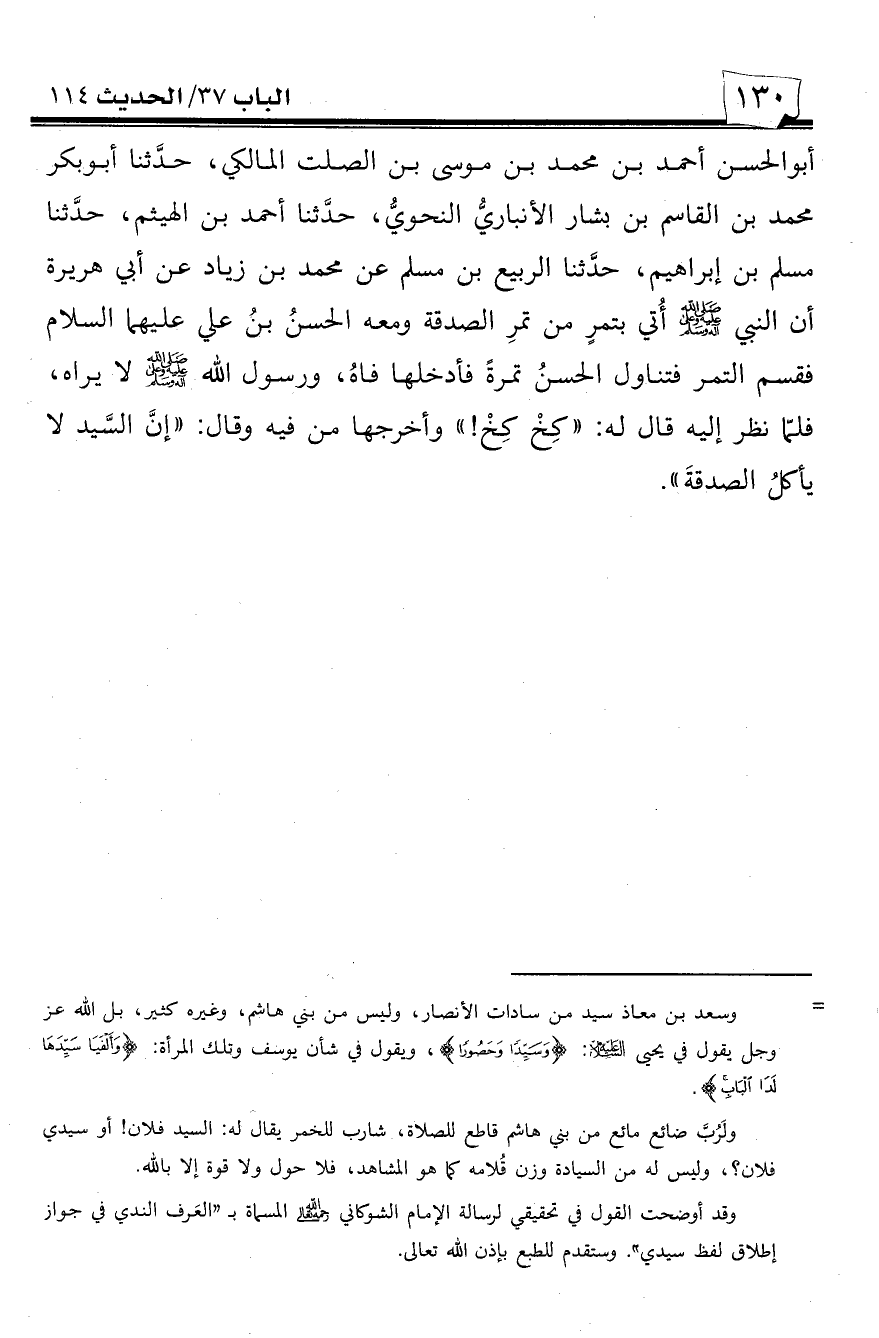 ١٣٠ الباب ٣٧/ الحديث ١١٤
أبوالحسن أحمد بن محمد بن موسى بن الصلت المالكي، حدَّثنا أبوبكر
محمد بن القاسم بن بشار الأنباريُّ النحويُّ، حدَّثنا أحمد بن الهيثم، حدَّثنا
مسلم بن إبراهيم، حدَّثنا الربيع بن مسلم عن محمد بن زياد عن أبي هريرة
أن النبي ﷺ أُتي بتمرٍ من تمرِ الصدقة ومعه الحسنُ بنُ علي عليهما السلام
فقسم التمر فتناول الحسنُ تمرةً فأدخلها فاهُ، ورسول الله ﷺ لا يراه،
فلمّا نظر إليه قال له: «كِخْ كِخْ!» وأخرجها من فيه وقال: «إنَّ السَّيد لا
يأكلُ الصدقةَ».
= وسعد بن معاذ سيد من سادات الأنصار، وليس من بني هاشم، وغيره كثير، بل الله عز
وجل يقول في يحيى العَلَيْهِ السَّلام: ﴿وَسَيِّدًا وَحَصُورًا﴾، ويقول في شأن يوسف وتلك المرأة: ﴿وَأَلْفَيَا سَيِّدَهَا
لَدَا ٱلْبَابِ﴾.
ولَرُبَّ ضائع مائع من بني هاشم قاطع للصلاة، شارب للخمر يقال له: السيد فلان! أو سيدي
فلان؟، وليس له من السيادة وزن قُلامه كما هو المشاهد، فلا حول ولا قوة إلا بالله.
وقد أوضحت القول في تحقيقي لرسالة الإمام الشوكاني رحمه الله المسماة بـ «العَرف الندي في جواز
إطلاق لفظ سيدي». وستقدم للطبع بإذن الله تعالى.